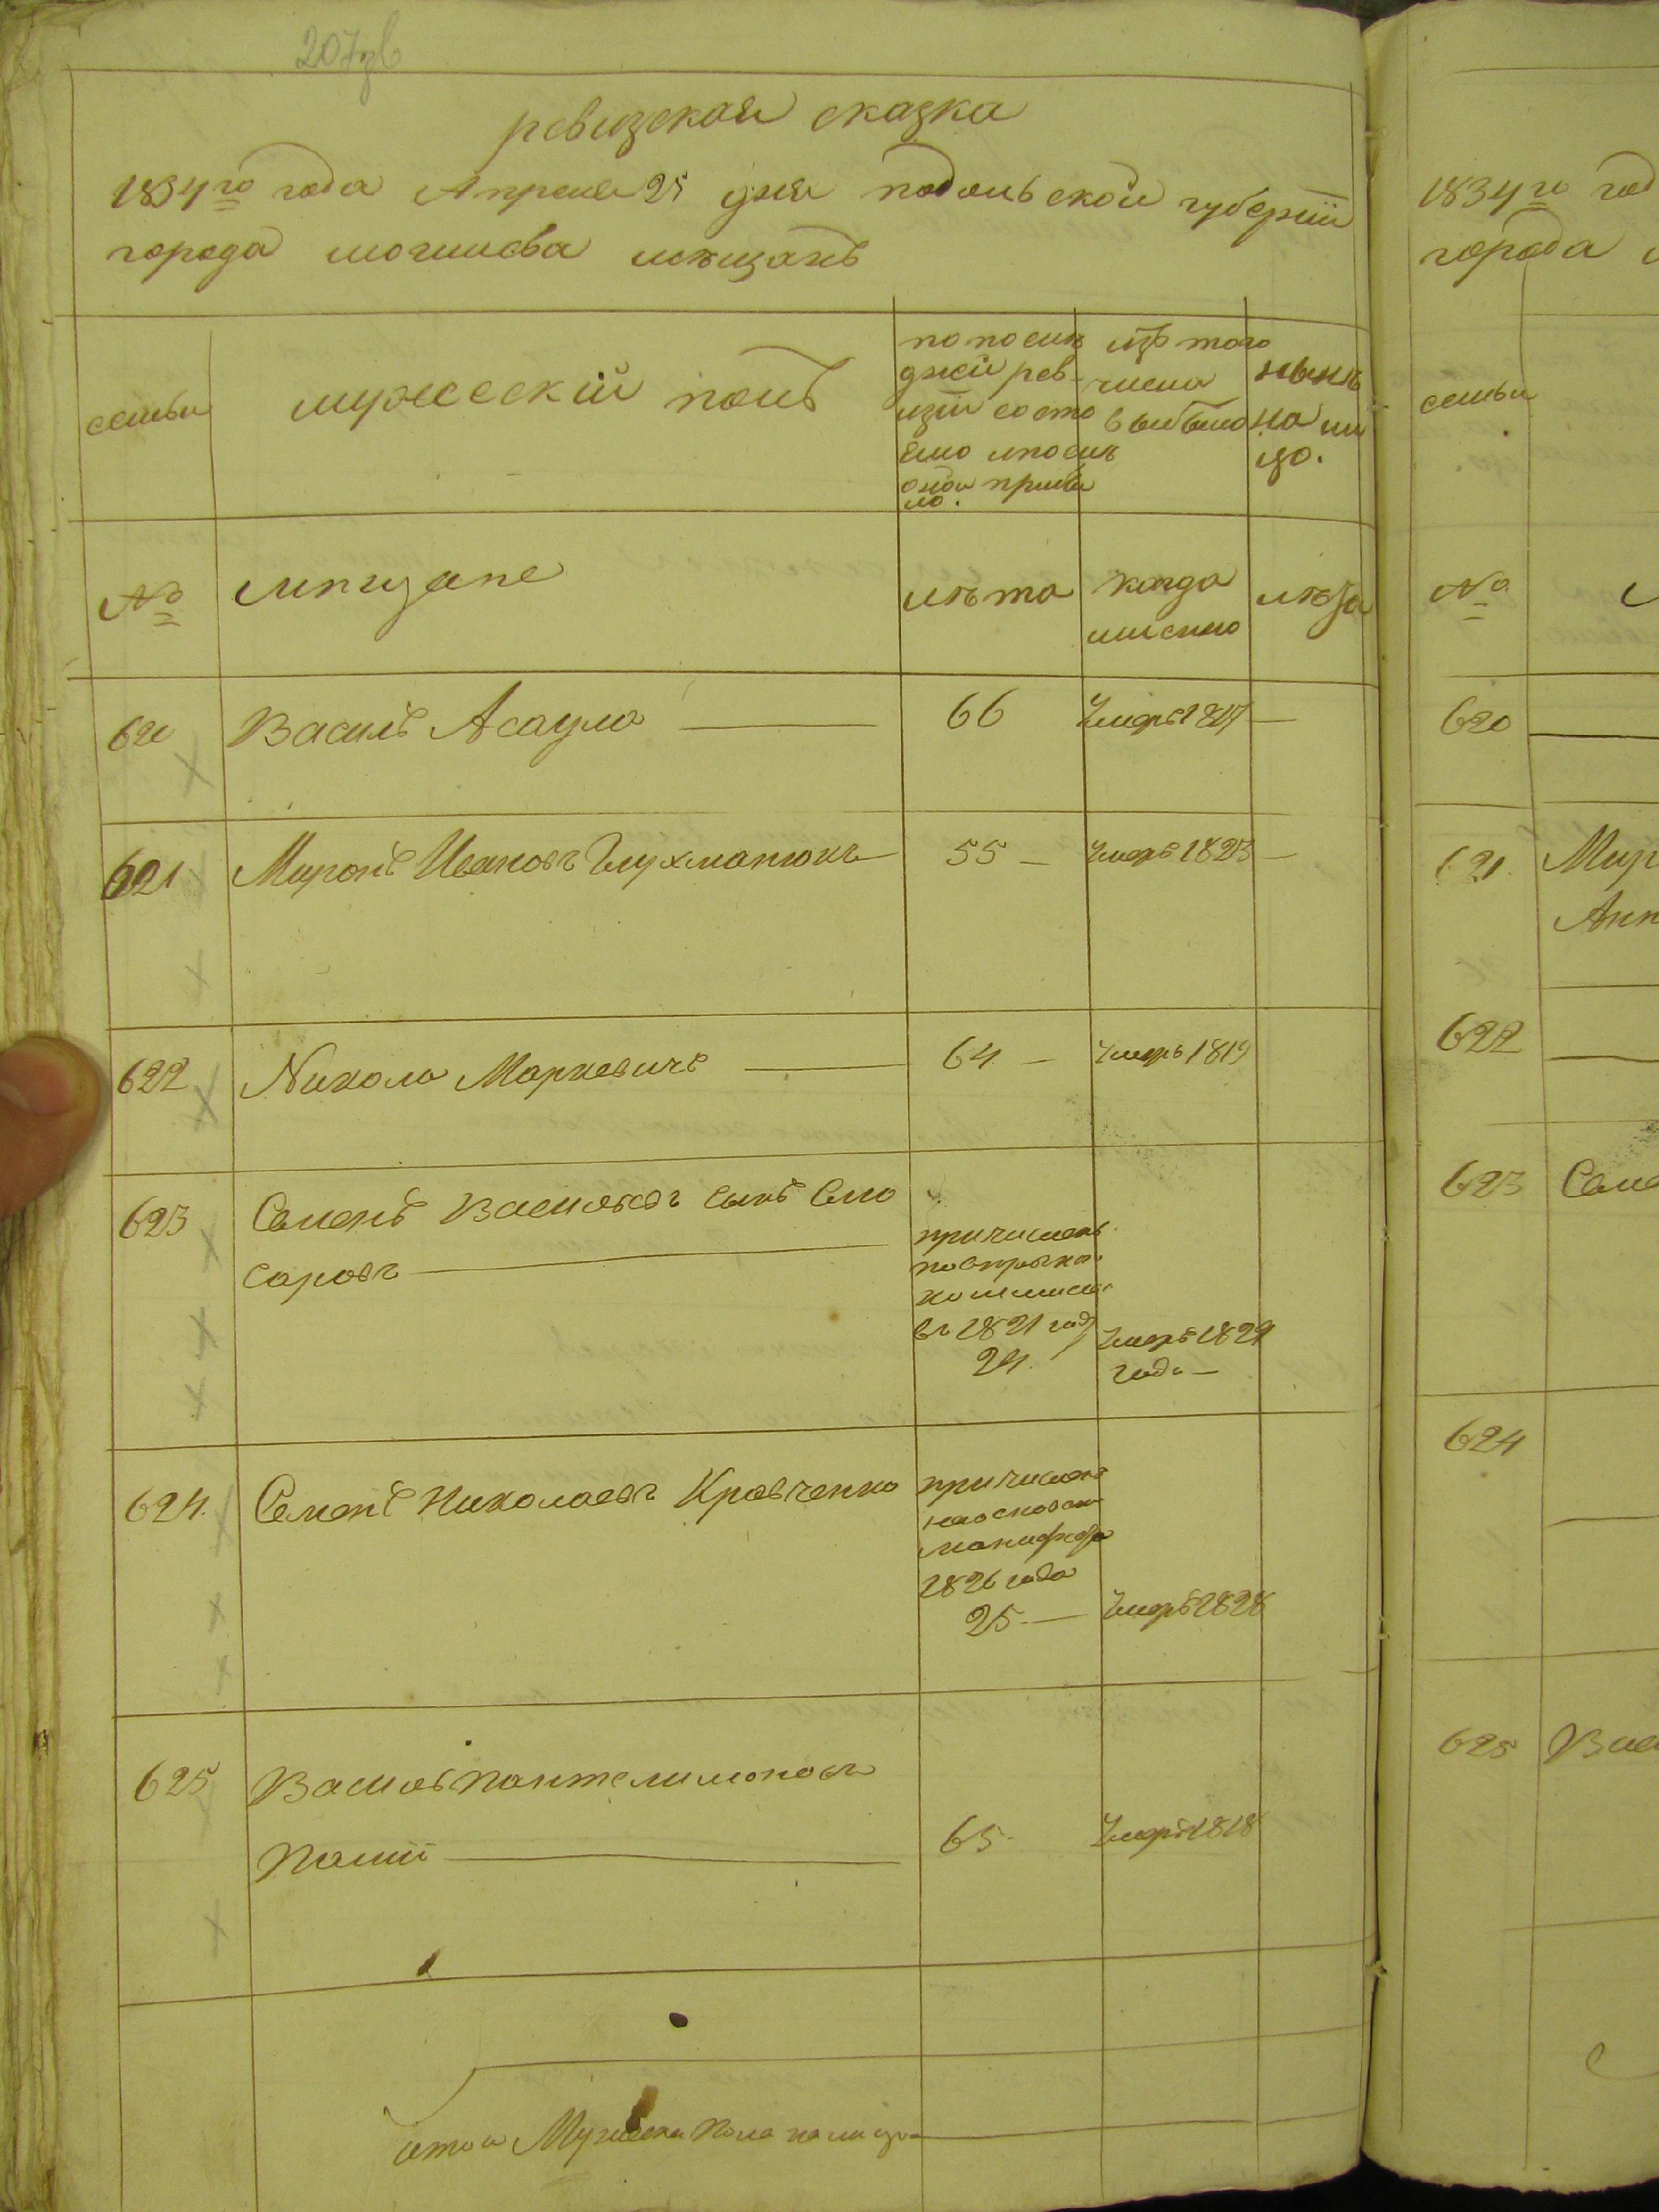 207зв
ревизская сказка
1834го года Апреля 25 дня подольской губернии
города могилева мѣщанъ
семьи
мужеский полъ
по послѣ
дней рев
изии состо
яло и послѣ
оной прибы
ло.
изъ того
числа
выбыло
нынѣ
на ли
цо.
№
мѣщане
лѣта
когда
именно
лѣта
620 Василь Асаула 66 Умеръ 1817
621 Миронъ Ивановъ Глухманюкъ 55 Умеръ 1823
622 Никола Маркевичъ 64 Умеръ 1819
623 Семенъ Васильевъ сынъ Слю
саровъ
причисленъ
въ 1821 году
24. Умеръ 1829
года
624. Семенъ Николаевъ Кравченко
причисленъ
на основан
манифеста
1826 года
25 Умеръ 1828
625 Василь пантелимоновъ
Палий 65 Умеръ 1818
итого Мужеска пола на лицо
1834го год
города
семьи
№
620
621 Мир
Анн
622
623 Семе
624
625 Вас